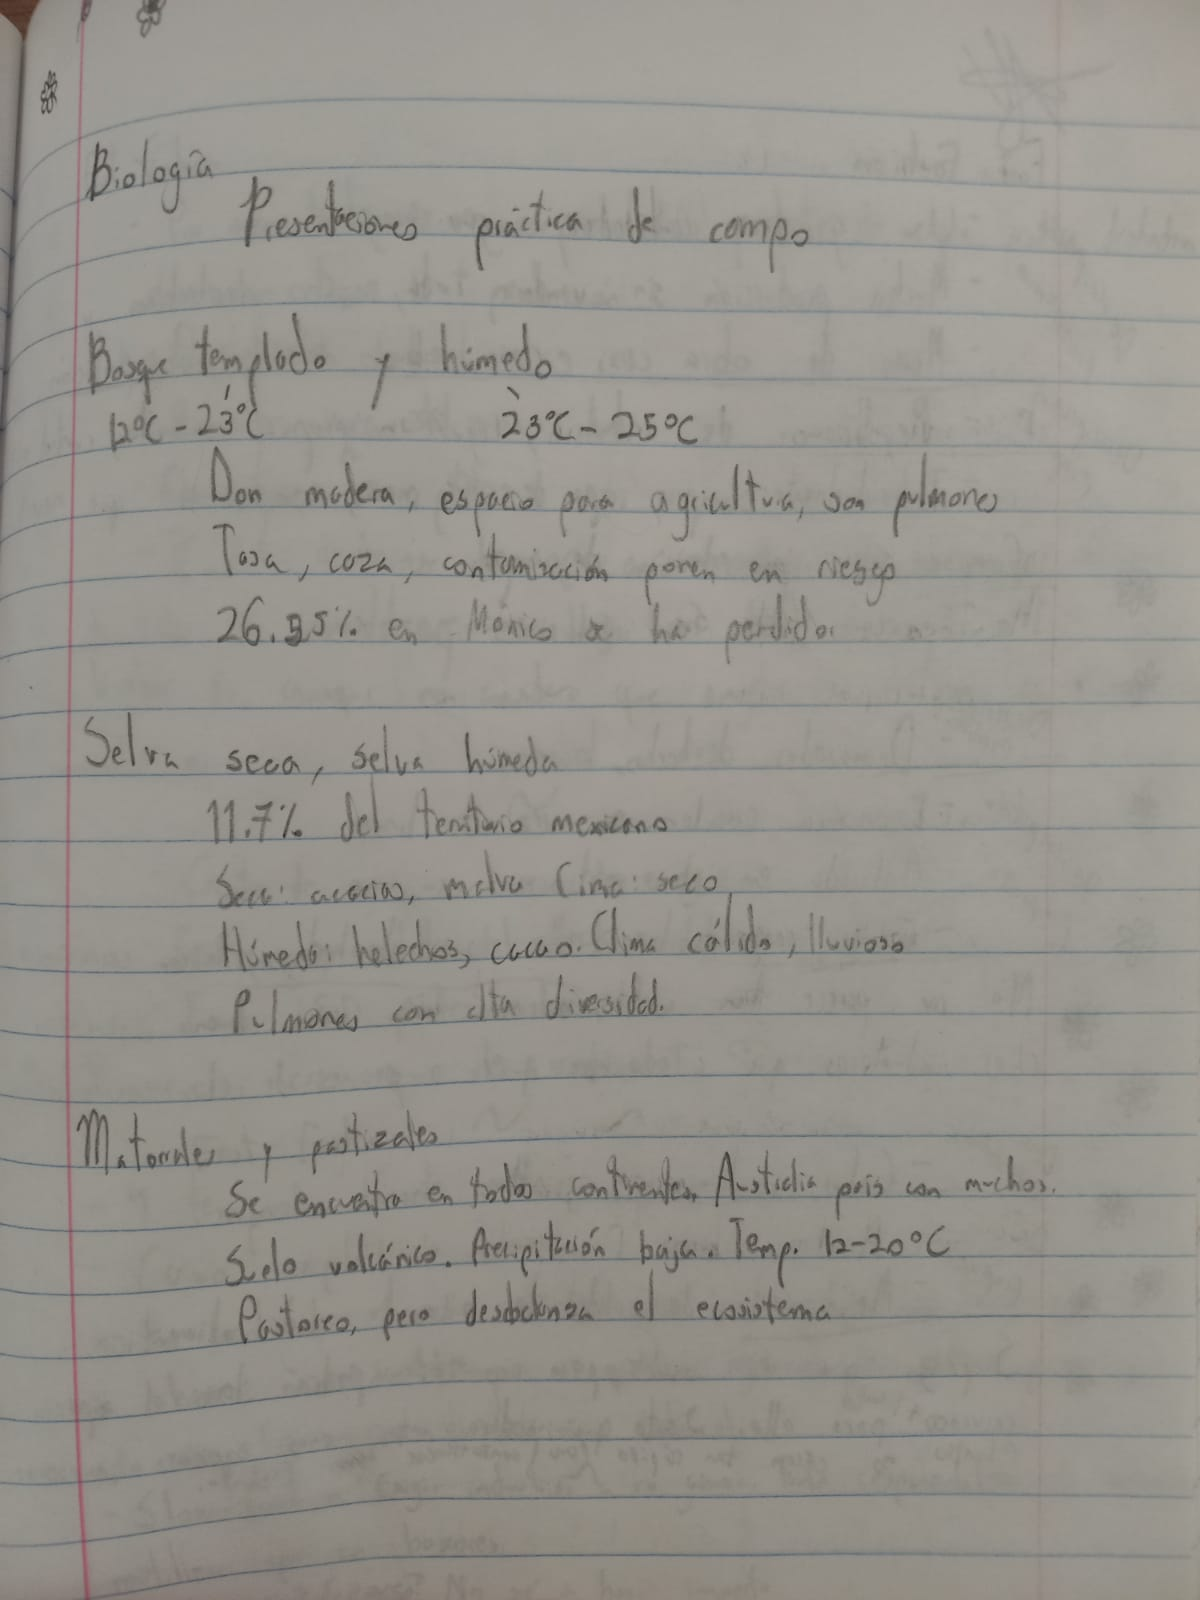 Biología
Presentaciones práctica de campo
Bosque templado y húmedo
12°C - 23°C 23°C - 25°C
Dan madera, espacio para agricultura, son pulmones
Tasa, caza, contaminación ponen en riesgo
26.95% en México se ha perdido.
Selva seca, selva húmeda
11.7% del territorio mexicano
Seca: acacias, malva Clima: seco
Húmeda: helechos, cacao. Clima cálido, lluvioso
Pulmones con alta diversidad.
Matorrales y pastizales
Se encuentra en todos continentes. Australia país con muchos.
Suelo volcánico. Precipitación baja. Temp. 12-20°C
Pastoreo, pero desbalanza el ecosistema